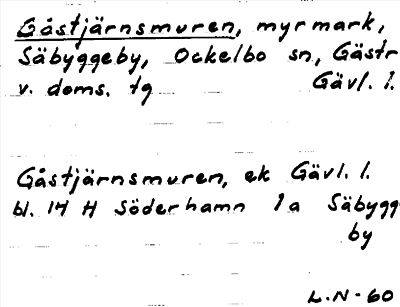 Gåstjärnsmuren, myrmark,
Säbyggeby, Ockelbo sn, Gästr
v. doms. tg Gävl. l.
Gåstjärnsmuren, ek Gävl. l.
bl. 14 H Söderhamn 1a Säbygg
by
L.N-60